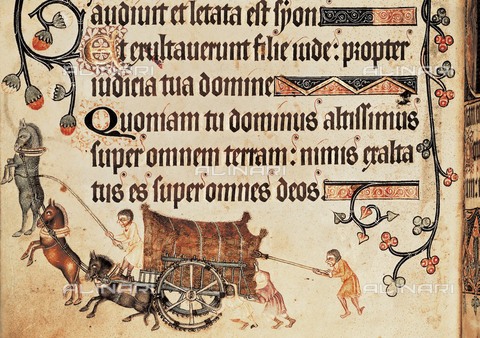 audiuit et letata est syon
Et exultauerunt filie iude: propter
iudicia tua domine
Quoniam tu dominus altissimus
super omnem terram: nimis exalta
tus es super omnes deos.
ALINARI
ALINARI
ALINARI
ALINARI
ALINARI